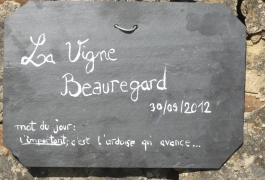 La Vigne
Beauregard
30/09/2012
mot du jour:
l'important, c'est l'ardoise qui avance...